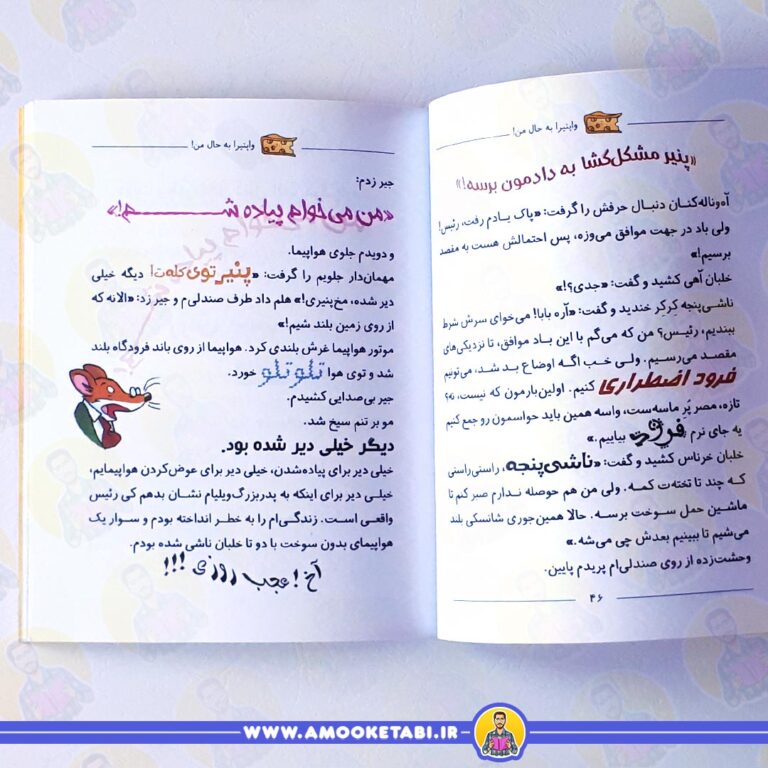 واپنیرا به حال من!
«پنیر مشکل‌گشا به دادمون برسه!»
آه‌وناله‌کنان دنبال حرفش را گرفت: «پاک یادم رفت، رئیس!
ولی باد در جهت موافق می‌وزه، پس احتمالش هست به مقصد
برسیم!»
خلبان آهی کشید و گفت: «جدی؟!»
ناشی‌پنجه کِرکِر خندید و گفت: «آره بابا! می‌خوای سرش شرط
ببندیم، رئیس؟ من که می‌گم با این باد موافق، تا نزدیکی‌های
مقصد می‌رسیم. ولی خب اگه اوضاع بد شد، می‌تونیم
فرود اضطراری کنیم. اولین‌بارمون که نیست، نه؟
تازه، مصر پُر ماسه‌ست، واسه همین باید حواسمون رو جمع کنیم
یه جای نرم فرود بیاییم.»
خلبان خرناس کشید و گفت: «ناشی‌پنجه، راستی‌راستی
که چند تا تخته‌ت کمه. ولی من هم حوصله ندارم صبر کنم تا
ماشین حمل سوخت برسه. حالا همین‌جوری شانسکی بلند
می‌شیم تا ببینیم بعدش چی می‌شه.»
وحشت‌زده از روی صندلی‌ام پریدم پایین.
۴۶
واپنیرا به حال من!
جیر زدم:
«من می‌خوام پیاده شــــــم!»
و دویدم جلوی هواپیما.
مهمان‌دار جلویم را گرفت: «پنیر توی کله‌ت! دیگه خیلی
دیر شده، مخ‌پنیری!» هلم داد طرف صندلی‌م و جیر زد: «الانه که
از روی زمین بلند شیم!»
موتور هواپیما غرش بلندی کرد. هواپیما از روی باند فرودگاه بلند
شد و توی هوا تلوتلو خورد.
جیر بی‌صدایی کشیدم.
مو بر تنم سیخ شد.
دیگر خیلی دیر شده بود.
خیلی دیر برای پیاده‌شدن، خیلی دیر برای عوض‌کردن هواپیمایم،
خیلی دیر برای اینکه به پدربزرگ‌ویلیام نشان بدهم کی رئیس
واقعی است. زندگی‌ام را به خطر انداخته بودم و سوار یک
هواپیمای بدون سوخت با دو تا خلبان ناشی شده بودم.
آخ! عجب روزی!!!
WWW.AMOOKETABI.IR